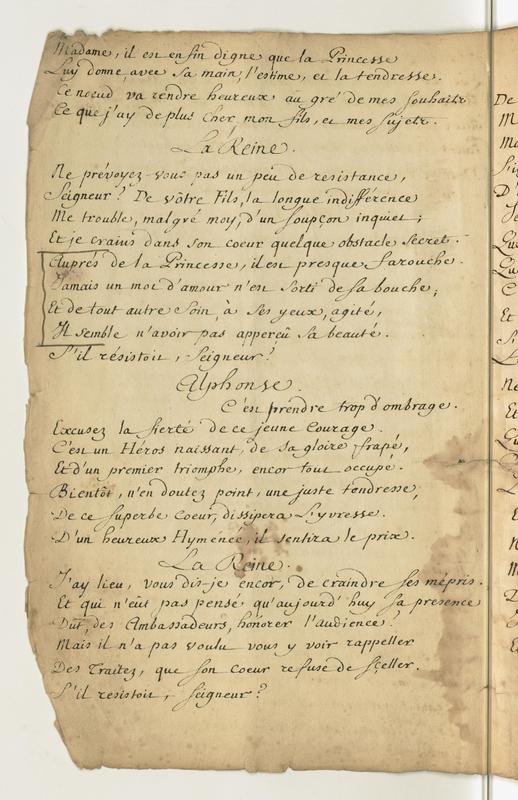 Madame, il est enfin digne que la Princesse
Luy donne, avec sa main, l'estime, et la tendresse.
Ce nœud va rendre heureux au gré de mes souhaits
Ce que j'ay de plus cher mon fils, et mes sujets.
La Reine.
Ne prévoyez-vous pas un peu de resistance,
Seigneur? De vôtre Fils, la longue indifférence
Me trouble, malgré moy, d'un soupçon inquiet;
Et je crains dans son coeur quelque obstacle secret.
Auprés de la Princesse, il est presque farouche.
Jamais un mot d'amour n'est sorti de sa bouche;
Et de tout autre soin, à ses yeux, agité,
Il semble n'avoir pas apperçû sa beauté.
S'il résistoit, Seigneur?
Alphonse.
C'est prendre trop d'ombrage.
Excusez la fierté de ce jeune courage.
C'est un Héros naissant, de sa gloire frapé,
Et d'un premier triomphe, encor tout occupé.
Bientôt, n'en doutez point, une juste tendresse,
De ce superbe coeur, dissipera l'yvresse.
D'un heureux Hymenée, il sentira le prix.
La Reine.
J'ay lieu, vous dis-je encor, de craindre ses mépris.
Et qui n'eût pas pensé qu'aujourd'huy sa presence
Dût, des Ambassadeurs, honorer l'audience?
Mais il n'a pas voulu vous y voir rappeller
Des Traitez, que son coeur refuse de sceller.
S'il resistoit, Seigneur?